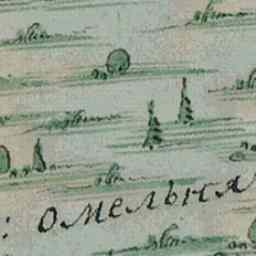 : омельная